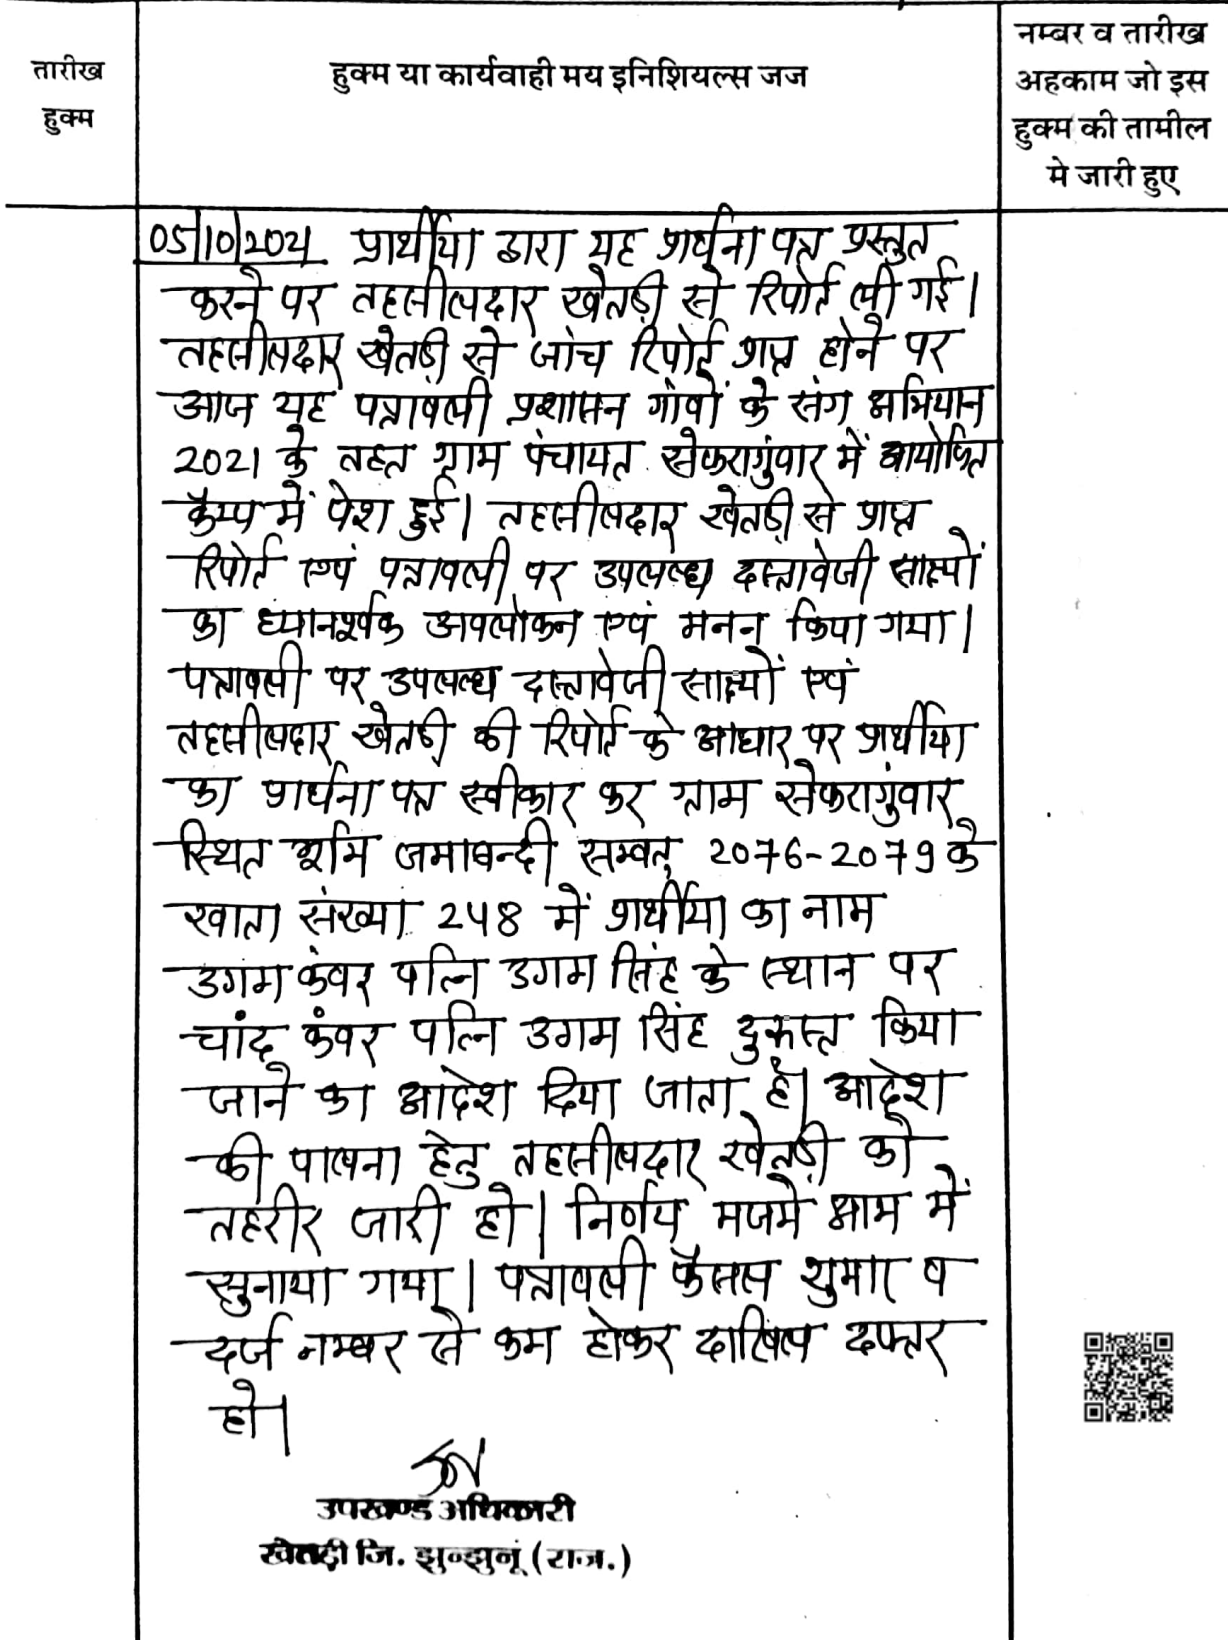 तारीख
हुक्म
हुक्म या कार्यवाही मय इनिशियल्स जज
नम्बर व तारीख
अहकाम जो इस
हुक्म की तामील
मे जारी हुए
05/10/2021 प्रार्थीया द्वारा यह प्रार्थना पत्र प्रस्तुत
करने पर तहसीलदार खेतडी से रिपोर्ट ली गई।
तहसीलदार खेतडी से जांच रिपोर्ट प्राप्त होने पर
आज यह पत्रावली प्रशासन गांवों के संग अभियान
2021 के तहत ग्राम पंचायत सेफरागुंवार में आयोजित
कैम्प में पेश हुई। तहसीलदार खेतडी से प्राप्त
रिपोर्ट एवं पत्रावली पर उपलब्ध दस्तावेजी साक्ष्यों
का ध्यानपूर्वक अवलोकन एवं मनन किया गया।
पत्रावली पर उपलब्ध दस्तावेजी साक्ष्यों एवं
तहसीलदार खेतडी की रिपोर्ट के आधार पर प्रार्थीया
का प्रार्थना पत्र स्वीकार कर ग्राम सेफरागुंवार
स्थित भूमि जमाबन्दी सम्वत् 2076-2079 के
खाता संख्या 248 में प्रार्थीया का नाम
उगम कंवर पत्नि उगम सिंह के स्थान पर
चांद कंवर पत्नि उगम सिंह दुरूस्त किया
जाने का आदेश दिया जाता है। आदेश
की पालना हेतु तहसीलदार खेतडी को
तहरीर जारी हो। निर्णय मजमे आम में
सुनाया गया। पत्रावली फैसल शुमार व
दर्ज नम्बर से कम होकर दाखिल दफ्तर
हो।
उपखण्ड अधिकारी
खेतड़ी जि. झुन्झुनूं (राज.)